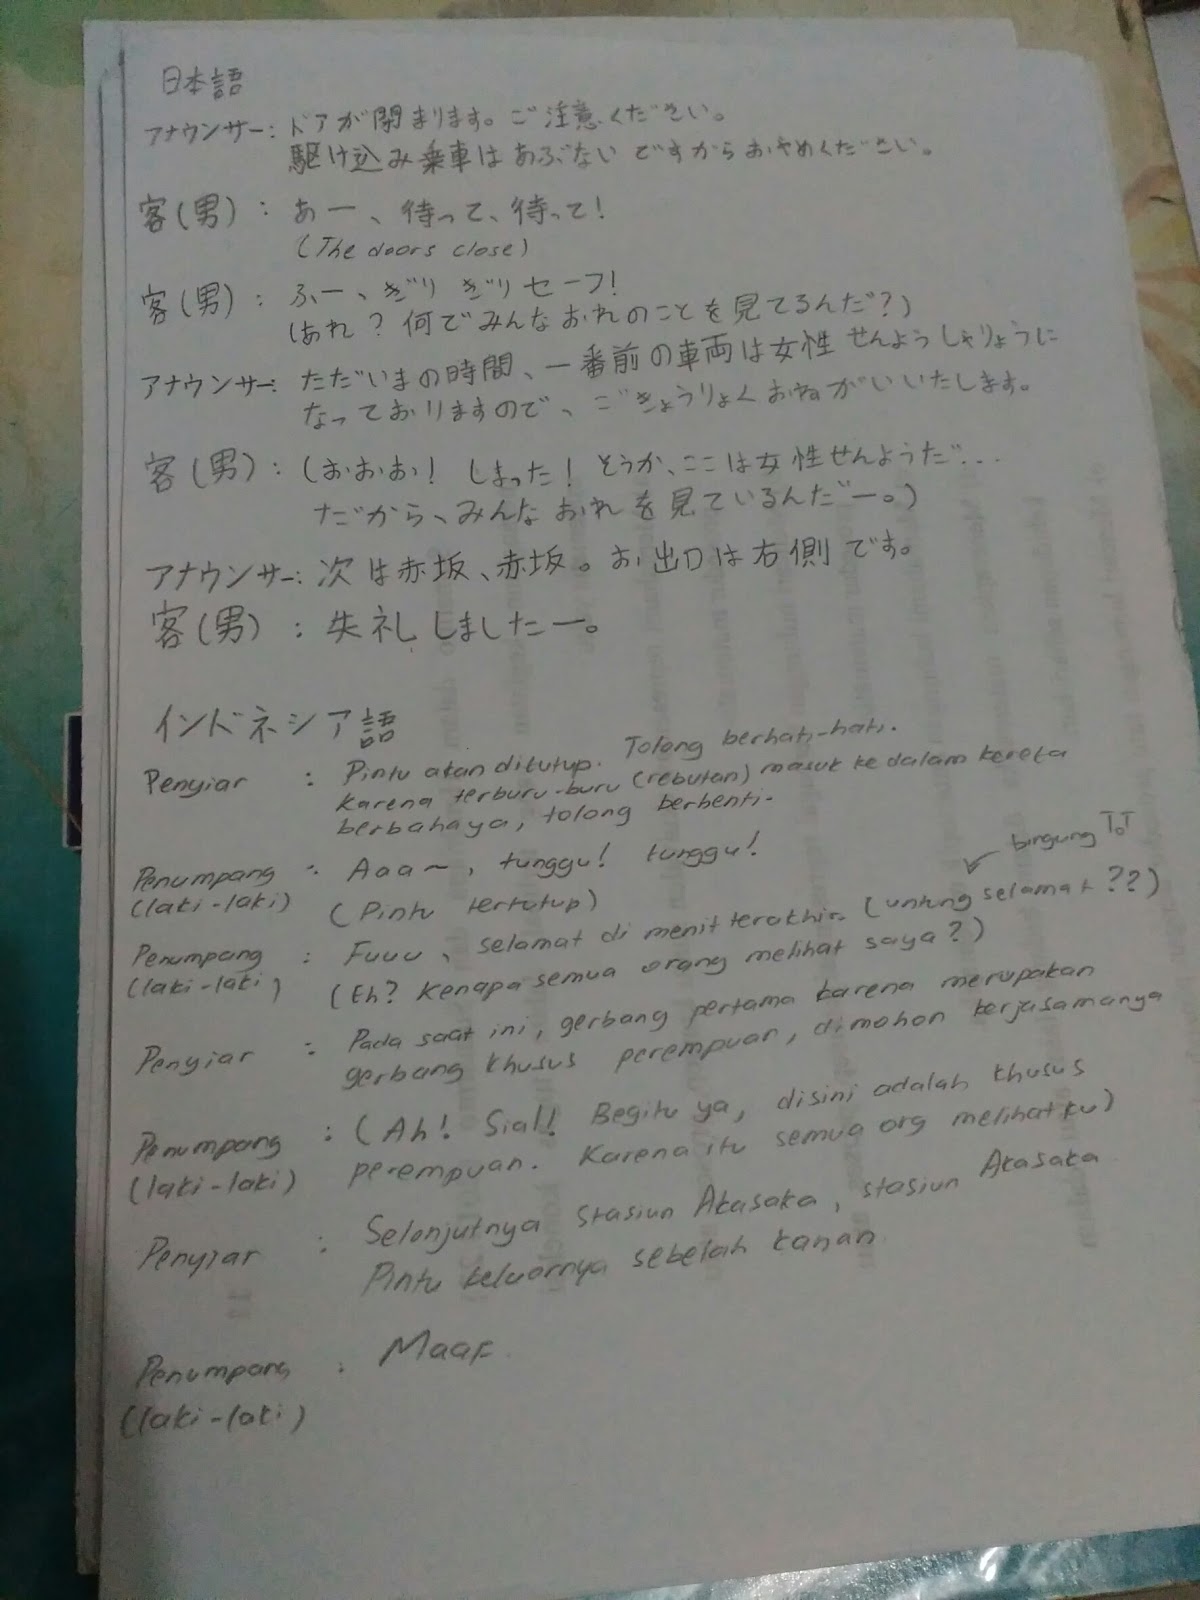 日本語
アナウンサー: ドアが閉まります。ご注意ください。
駆け込み乗車はあぶないですからおやめください。
客(男) : あー、待って、待って!
(The doors close)
客(男) : ふー、ぎりぎりセーフ!
(あれ? 何でみんなおれのことを見てるんだ?)
アナウンサー: ただいまの時間、一番前の車両は女性せんようしゃりょうに
なっておりますので、ごきょうりょくおねがいいたします。
客(男) : (おおお! しまった! そうか、ここは女性せんようだ...
だから、みんなおれを見ているんだー。)
アナウンサー: 次は赤坂、赤坂。お出口は右側です。
客(男) : 失礼しましたー。
インドネシア語
Penyiar : Pintu akan ditutup. Tolong berhati-hati.
Karena terburu-buru (rebutan) masuk ke dalam kereta
berbahaya, tolong berhenti.
Penumpang : Aaa~, tunggu! tunggu!
(laki-laki) (Pintu tertutup)
bingung ToT
Penumpang : Fuuu, selamat di menit terakhir. (untung selamat??)
(laki-laki) (Eh? Kenapa semua orang melihat saya?)
Penyiar : Pada saat ini, gerbang pertama karena merupakan
gerbang khusus perempuan, dimohon kerjasamanya
Penumpang : (Ah! Sial! Begitu ya, disini adalah khusus
(laki-laki) perempuan. Karena itu semua org melihatku)
Penyiar : Selanjutnya stasiun Akasaka, stasiun Akasaka
Pintu keluarnya sebelah kanan
Penumpang : Maaf
(laki-laki)